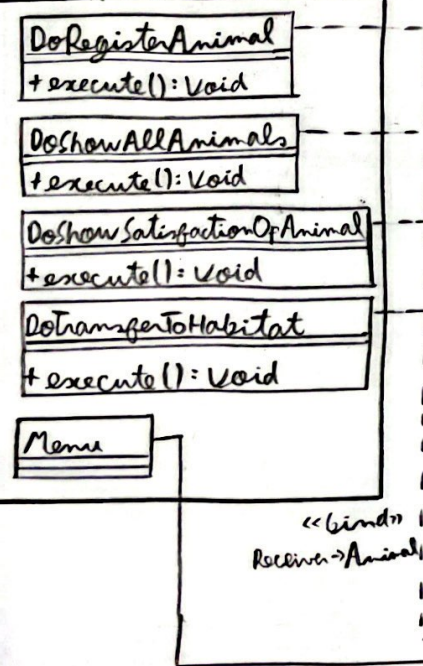 DoRegisterAnimal
+ execute(): Void
DoShowAllAnimals
+ execute(): Void
DoShowSatisfactionOfAnimal
+ execute(): Void
DoTransferToHabitat
+ execute(): Void
Menu
<<bind>>
Receiver->Animal